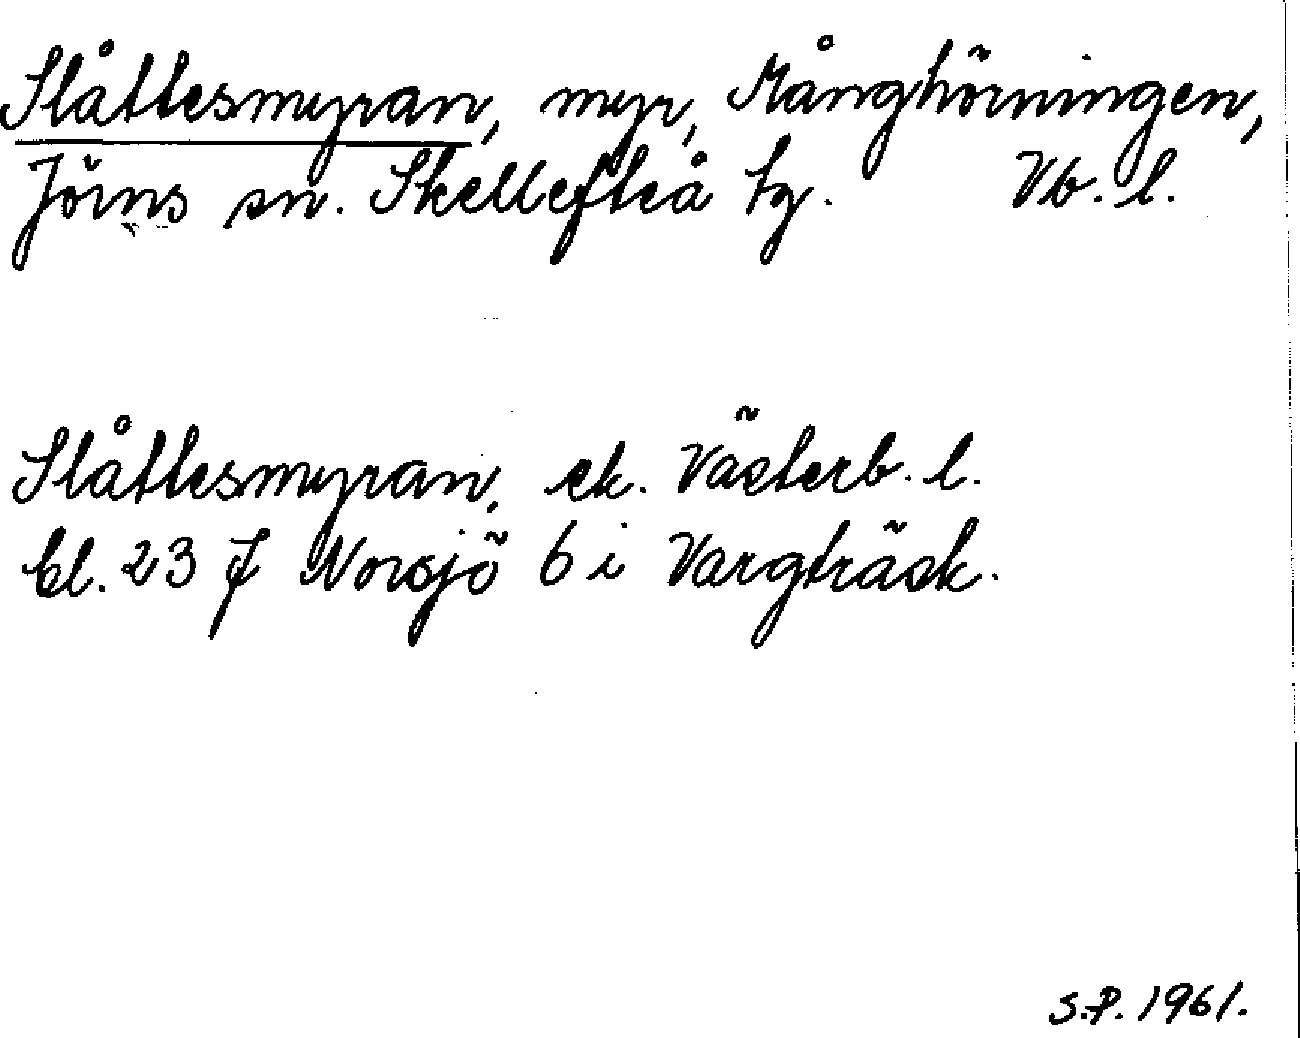 Slåttesmyran, myr, Månghörningen,
Jörns sn. Skellefteå tg. Vb. l.
Slåttesmyran, ek. Västerb. l.
bl. 23 f Norsjö 6 i Vargträsk.
S.P. 1961.